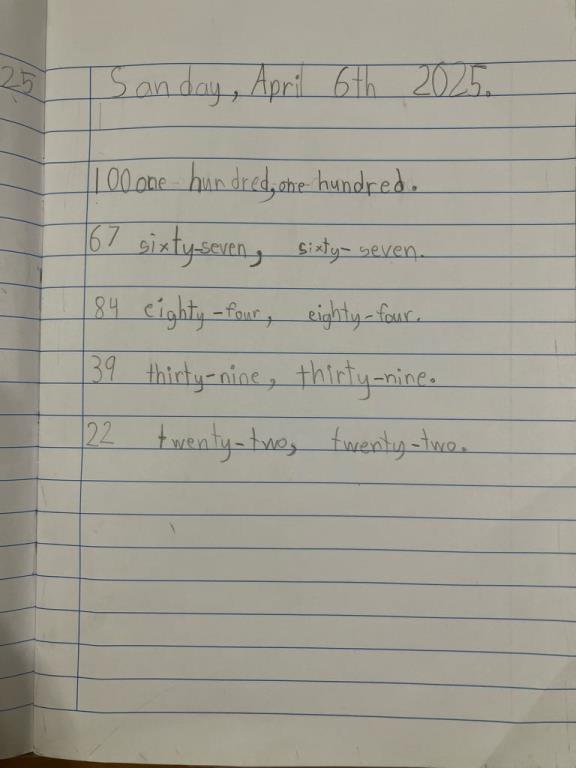 25
Sanday, April 6th 2025.
100 one-hundred, one hundred.
67 sixty-seven, sixty-seven.
84 eighty-four, eighty-four.
39 thirty-nine, thirty-nine.
22 twenty-two, twenty-two.